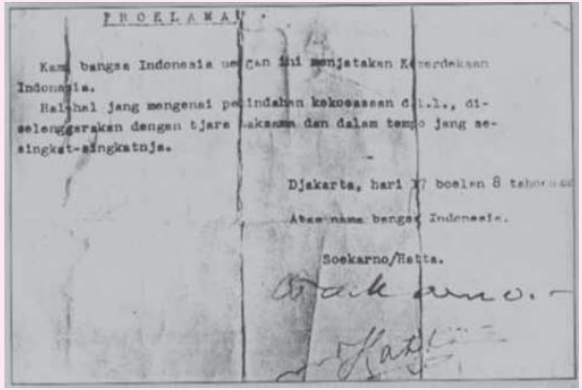 PROKLAMASI
Kami bangsa Indonesia dengan ini menjatakan Kemerdekaan
Indonesia.
Hal-hal jang mengenai pemindahan kekoeasaan d.l.l., di-
selenggarakan dengan tjara saksama dan dalam tempo jang se-
singkat-singkatnja.
Djakarta, hari 17 boelan 8 tahoen
Atas nama bangsa Indonesia.
Soekarno/Hatta.
Soekarno.-
Hatta